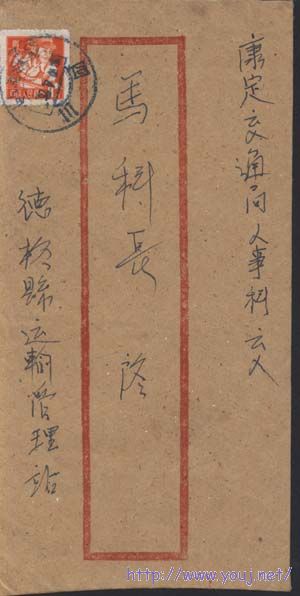 康定交通局人事科交
馬科長 啓
德格縣运輸管理站
http://www.youj.net/